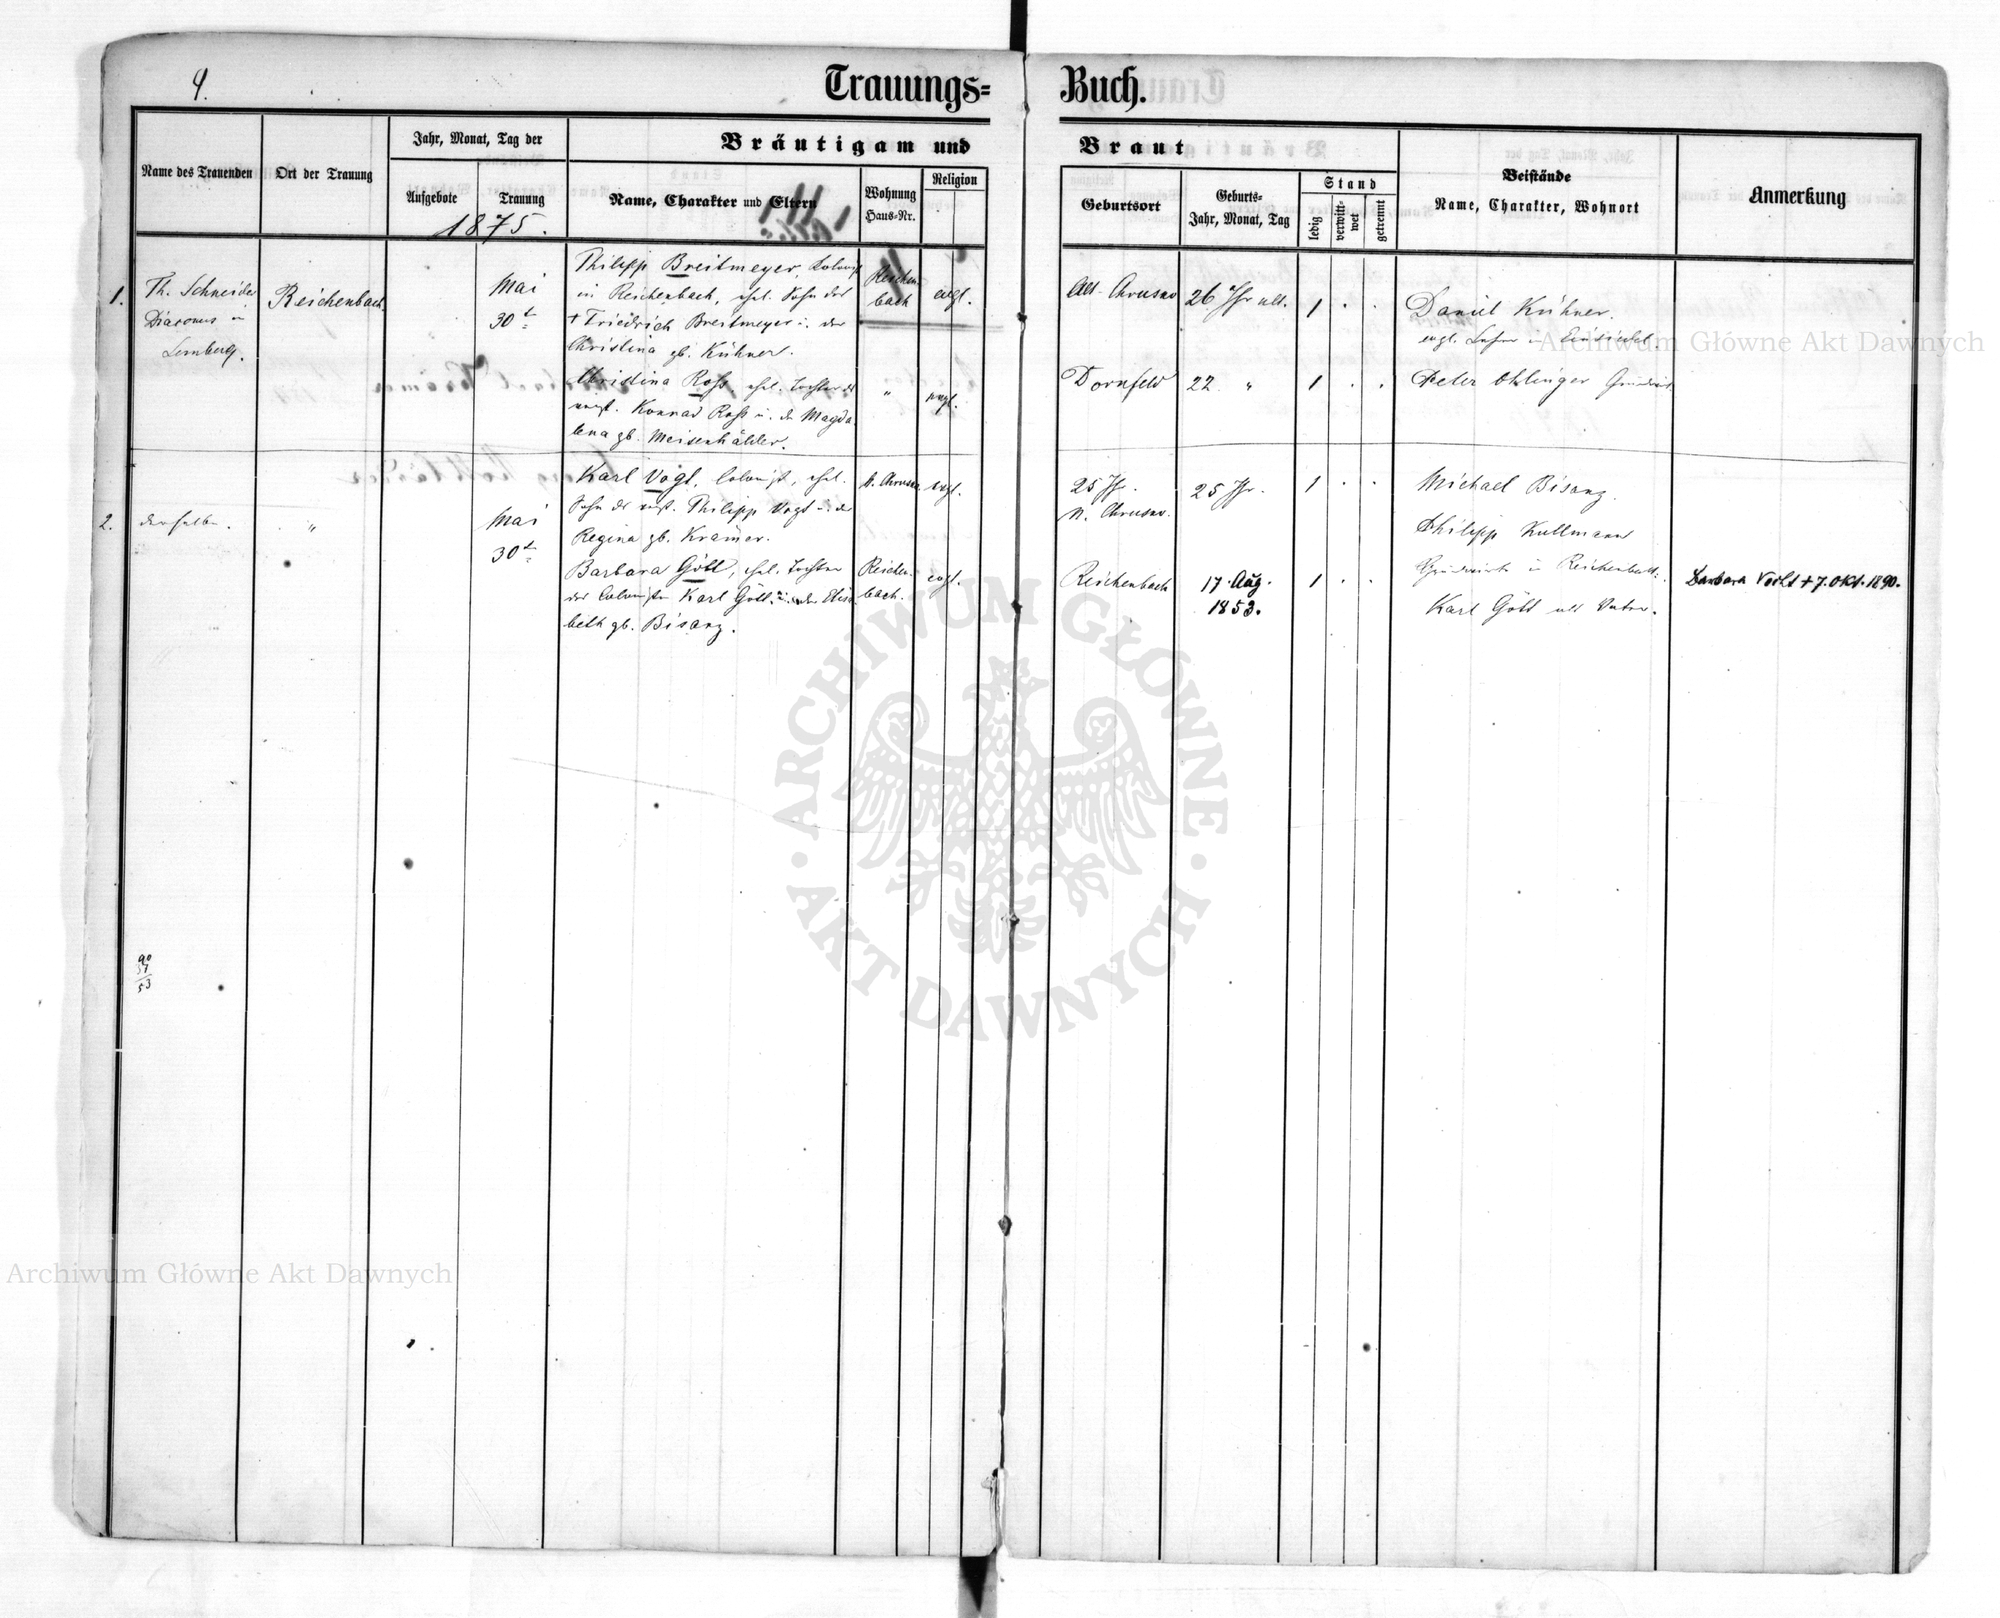 9.
Trauungs=
Buch.
Name des Trauenden
Ort der Trauung
Jahr, Monat, Tag der
Aufgebote
Trauung
1875.
Bräutigam und
Name, Charakter und Eltern
Wohnung
Haus=Nr.
Religion
Braut
Geburtsort
Geburts=
Jahr, Monat, Tag
Stand
ledig
verwitt=
wet
getrennt
Beistände
Name, Charakter, Wohnort
Anmerkung
1.
Th. Schneider
Diaconus in
Lemberg.
Reichenbach.
Mai
30t
Philipp Breitmeyer, Colonist
in Reichenbach, ehel. Sohn des
+ Friedrich Breitmeyer u. der
Christina gb. Kühner.
Reichen
bach
evgl.
Alt-Chrusno
26 Jhr alt.
1
Daniel Kühner.
evgl. Lehrer in Einsiedel.
Christina Ross, ehel. Tochter des
Konrad Ross u. der Magda
lena gb. Meisenhälder.
"
evgl.
Dornfeld
22 "
1
Peter Ohlinger Grundwirt
2.
derselbe.
"
Mai
30t
Karl Vogt, Colonist, ehel.
Sohn des Philipp Vogt u. der
Regina gb. Krämer.
n. Chrusno.
evgl.
25 Jhr.
n. Chrusno.
25 Jhr.
1
Michael Bisanz.
Philipp Kullmann
Grundwirte in Reichenbach.
Barbara Gött, ehel. Tochter
des Colonisten Karl Gött u. der Elisa
beth gb. Bisanz.
Reichen
bach.
evgl.
Reichenbach
17. Aug.
1853.
1
Karl Gött als Vater.
Barbara Vogt + 7. Okt. 1890.
90
37
53
ARCHIWUM GŁÓWNE
AKT DAWNYCH
Archiwum Główne Akt Dawnych
Archiwum Główne Akt Dawnych